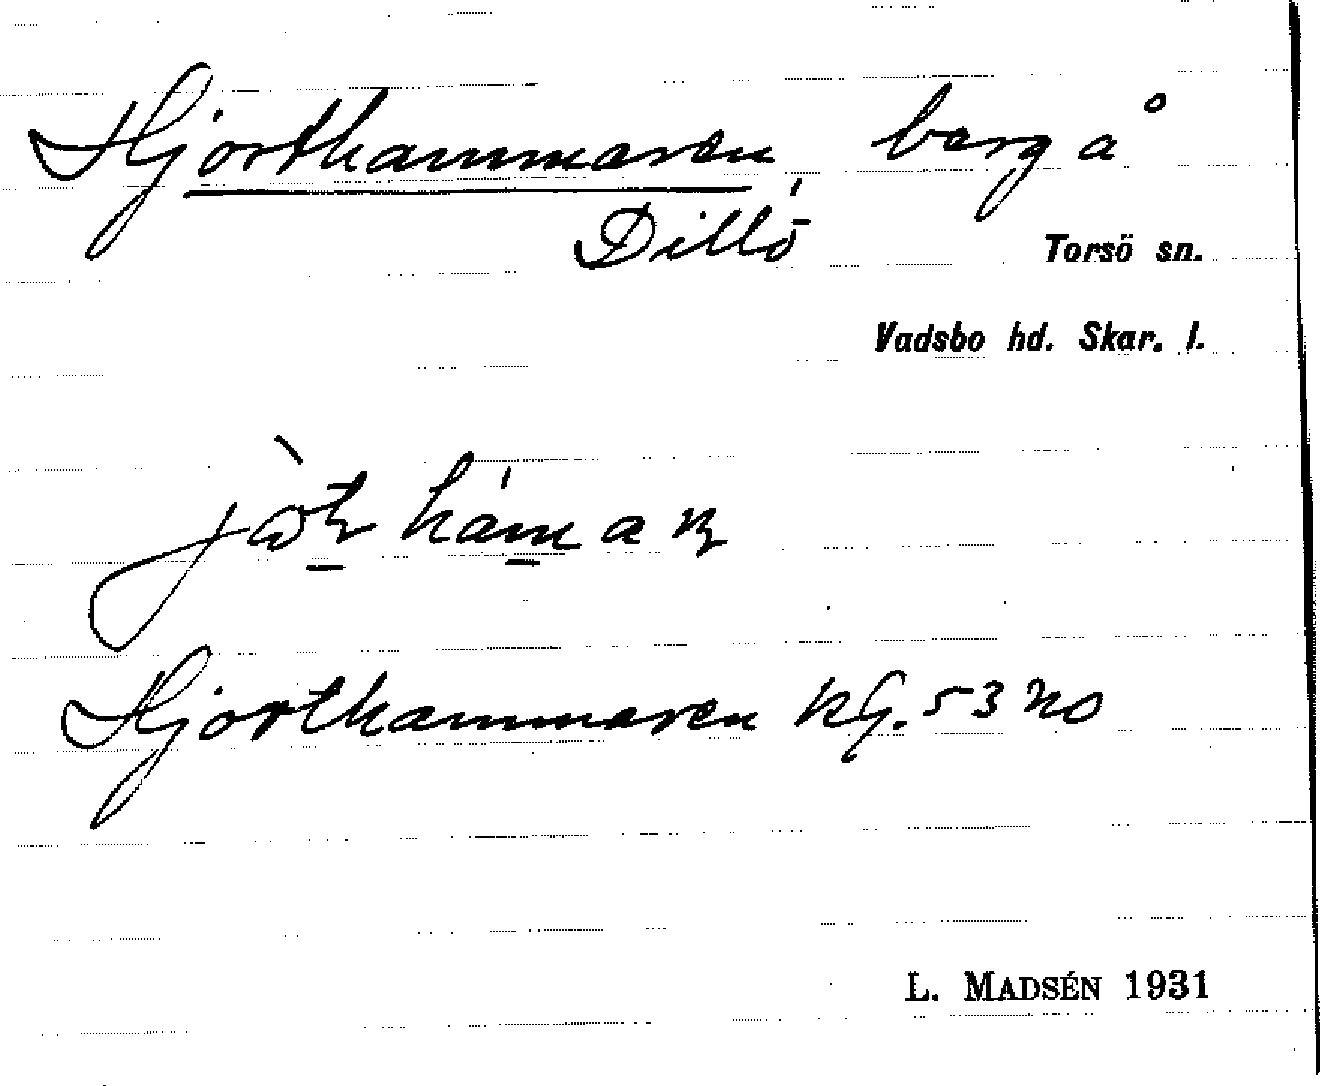 Hjorthammaren berg å
Dillö
Torsö sn.
Vadsbo hd. Skar. l.
Hjorthammaren kG. 53 no
L. MADSÉN 1931